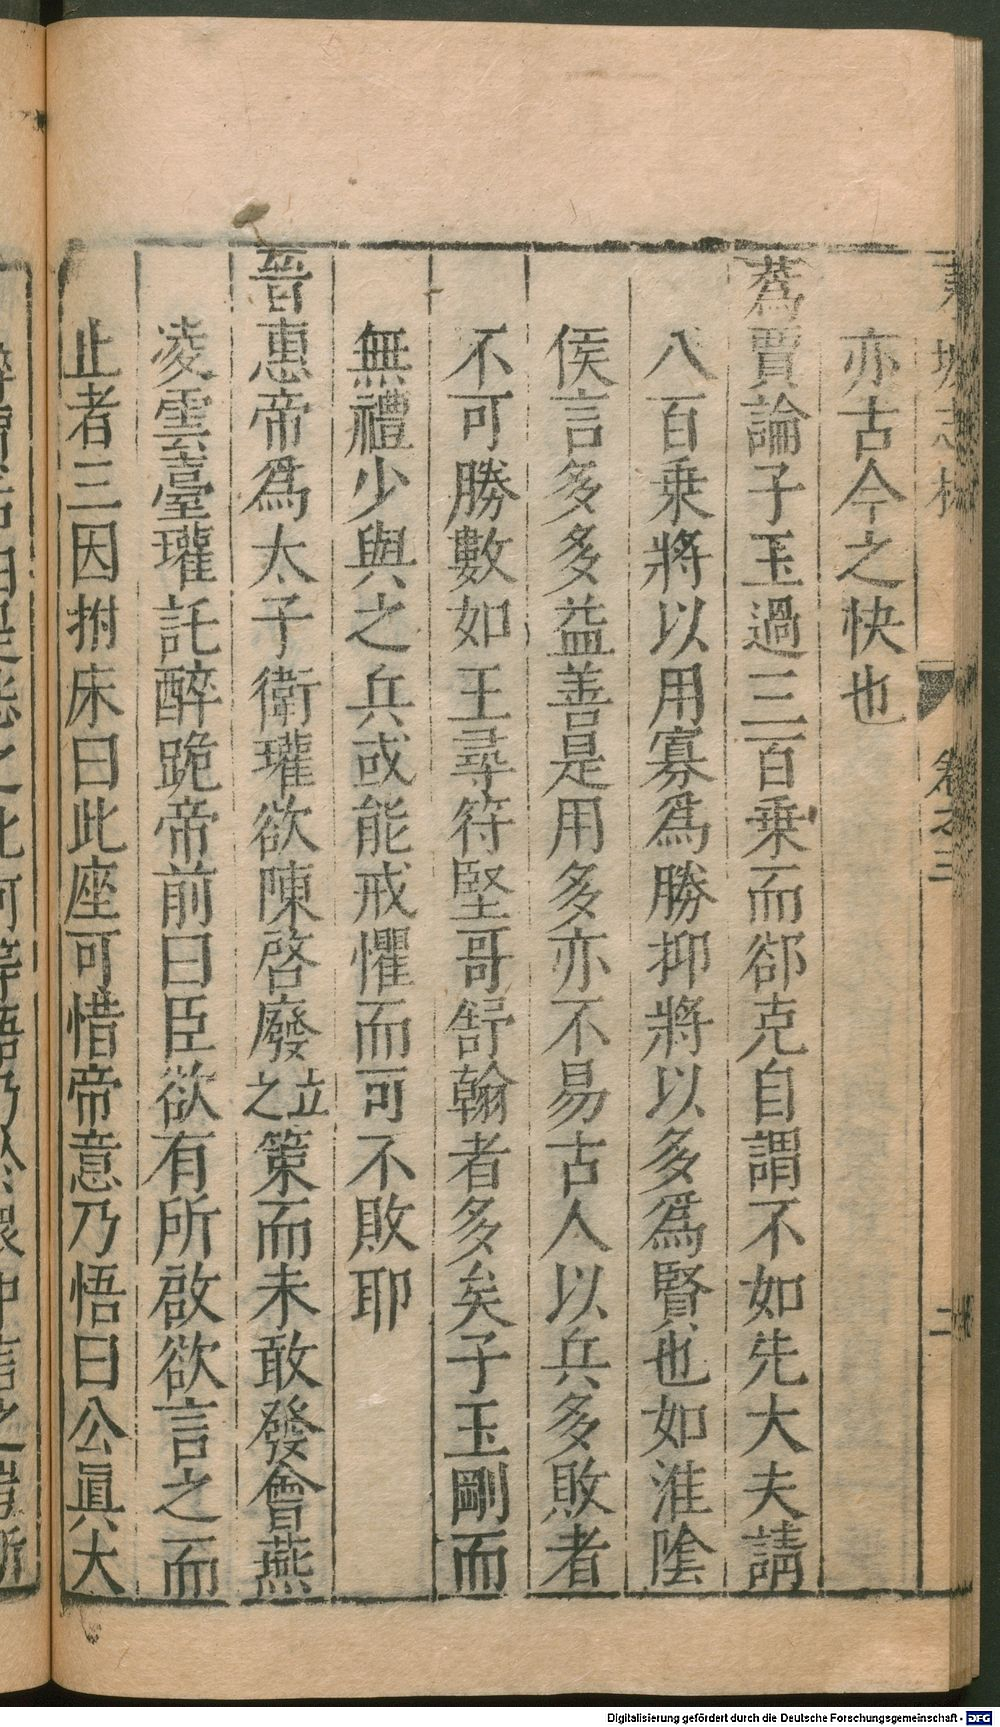 東坡志林
卷之三
二
亦古今之快也
蒍賈論子玉過三百乘而郤克自謂不如先大夫請
八百乘將以用寡爲勝抑將以多爲賢也如淮陰
侯言多多益善是用多亦不易古人以兵多敗者
不可勝數如王尋符堅哥舒翰者多矣子玉剛而
無禮少與之兵或能戒懼而可不敗耶
晉惠帝爲太子衛瓘欲陳啓廢立之策而未敢發會燕
凌雲臺瓘託醉跪帝前曰臣欲有所啟欲言之而
止者三因拊床曰此座可惜帝意乃悟曰公眞大
Digitalisierung gefördert durch die Deutsche Forschungsgemeinschaft - DFG